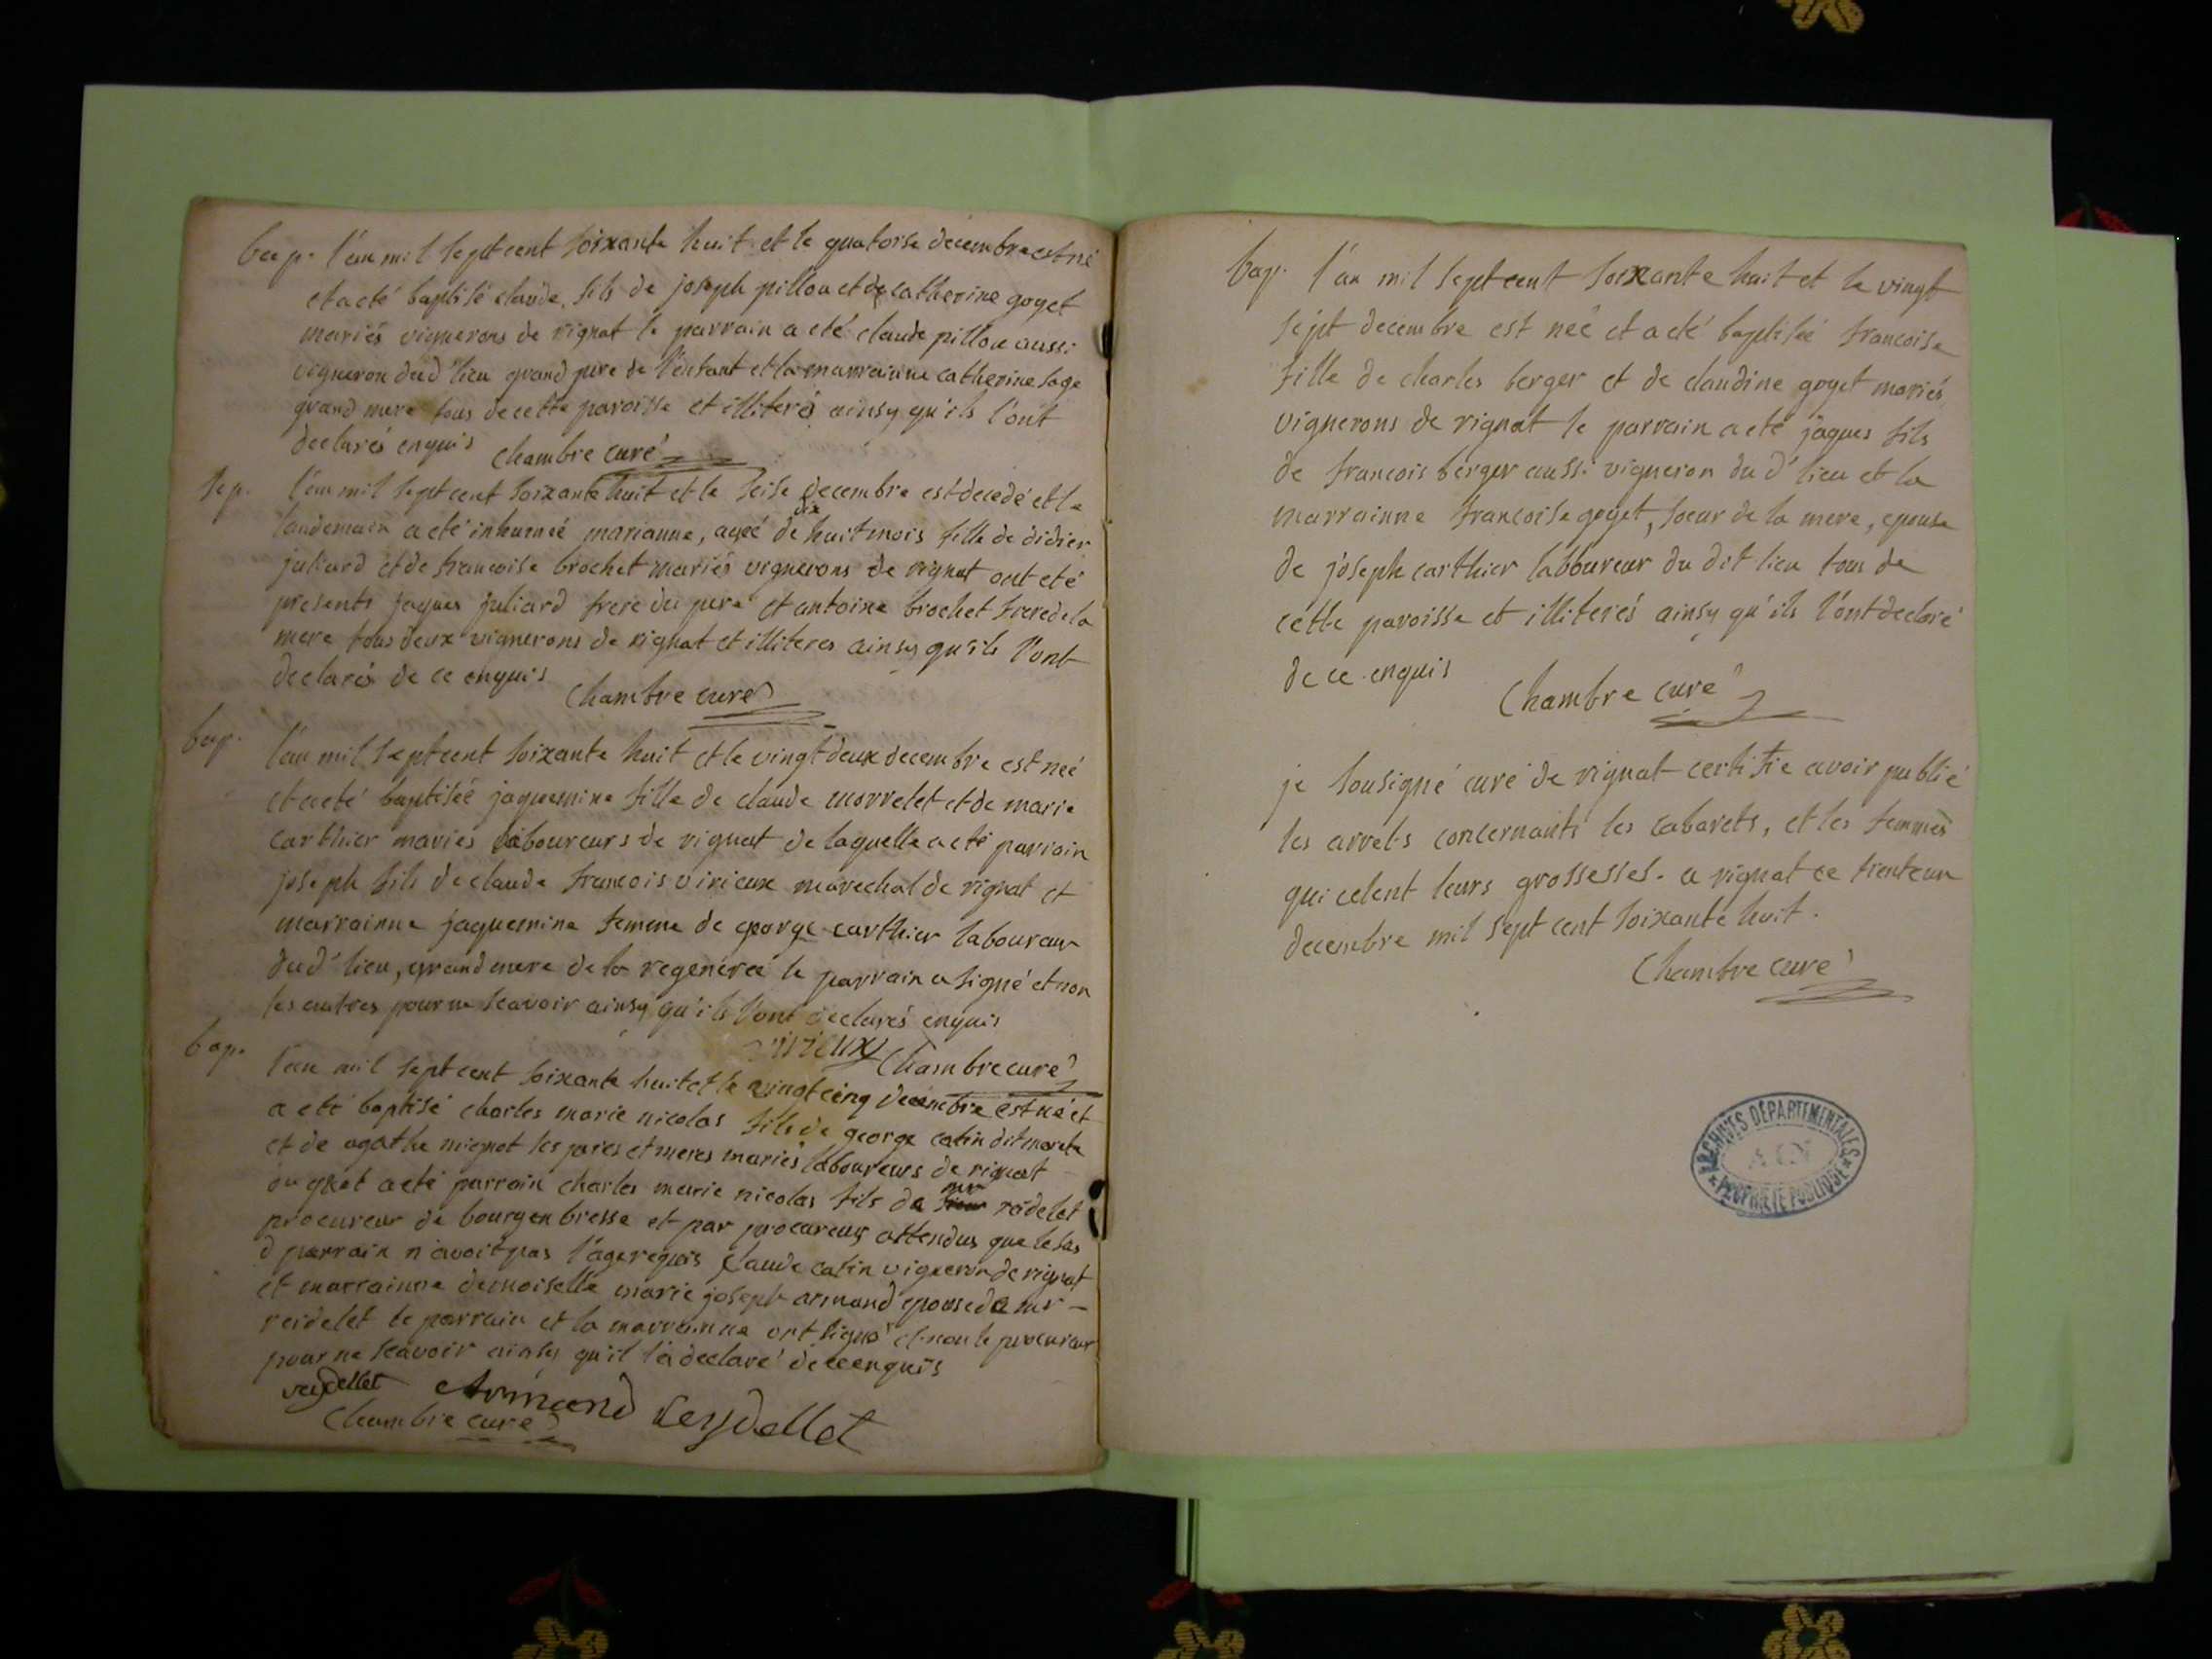 bap. l'an mil sept cent soixante huit et le quatorse decembre est né
et a eté baptisé claude, fils de joseph pillou et de catherine goyet
mariés vignerons de rignat le parrain a eté claude pillou aussi
vigneron dud lieu grand pere de l'enfant et la marrainne catherine sage
grand mere tous de cette paroisse et illiterés ainsy qu'ils l'ont
declarés enquis chambre curé
sep. l'an mil sept cent soixante huit et le seise decembre est decedé et le
landemain a eté inhumeé marianne, ageé de dix huit mois fille de didier
juliard et de francoise brochet mariés vignerons de rignat ont eté
presents jaques juliard frere du pere et antoine brochet frere de la
mere tous deux vignerons de rignat et illiteres ainsy qu'ils l'ont
declarés de ce enquis
Chambre curé
bap. l'an mil sept cent soixante huit et le vingt deux decembre est neé
et a eté baptiseé jaquemine fille de claude morrelet et de marie
carthier mariés laboureurs de rignat de laquelle a eté parrain
joseph fils de claude francois virieux marechal de rignat et
marrainne jaquemine femme de george carthier laboureur
dud' lieu, grand mere de la regenereé le parrain a signé et non
les autres pour ne scavoir ainsy qu'ils l'ont declarés enquis
virieux Chambre curé
bap. l'an mil sept cent soixante huit et le vingt cinq decembre est né et
a eté baptisé charles marie nicolas fils de george catin dit
et de agathe mignot les peres et meres mariés laboureurs de rignat
du quel a eté parrain charles marie nicolas fils de mr redelet
procureur de bourg en bresse et par procureur attendus que le sus
d parrain n'avoit pas l'age requis Claude catin vigneron de rignat
et marrainne demoiselle marie joseph armand epouse de mr
reidelet le parrain et la marrainne ont signé et non le procureur
pour ne scavoir ainsy qu'il l'a declaré de ce enquis
reydellet Armand Reydellet
Chambre curé
bap. l'an mil sept cent soixante huit et le vingt
sept decembre est neé et a eté baptiseé francoise
fille de charles berger et de claudine goyet mariés
vignerons de rignat le parrain a eté jaques fils
de francois berger aussi vigneron du d' lieu et la
marrainne francoise goyet, soeur de la mere, epouse
de joseph carthier labboureur du dit lieu tous de
cette paroisse et illiterés ainsy qu'ils l'ont declaré
de ce enquis
Chambre curé
je sousigné curé de rignat certifie avoir publié
les arrets concernants les cabarets, et les femmes
qui celent leurs grossesses. a rignat ce trente un
decembre mil sept cent soixante huit.
Chambre curé
ARCHIVES DÉPARTEMENTALES
AIN
PROPRIÉTÉ PUBLIQUE